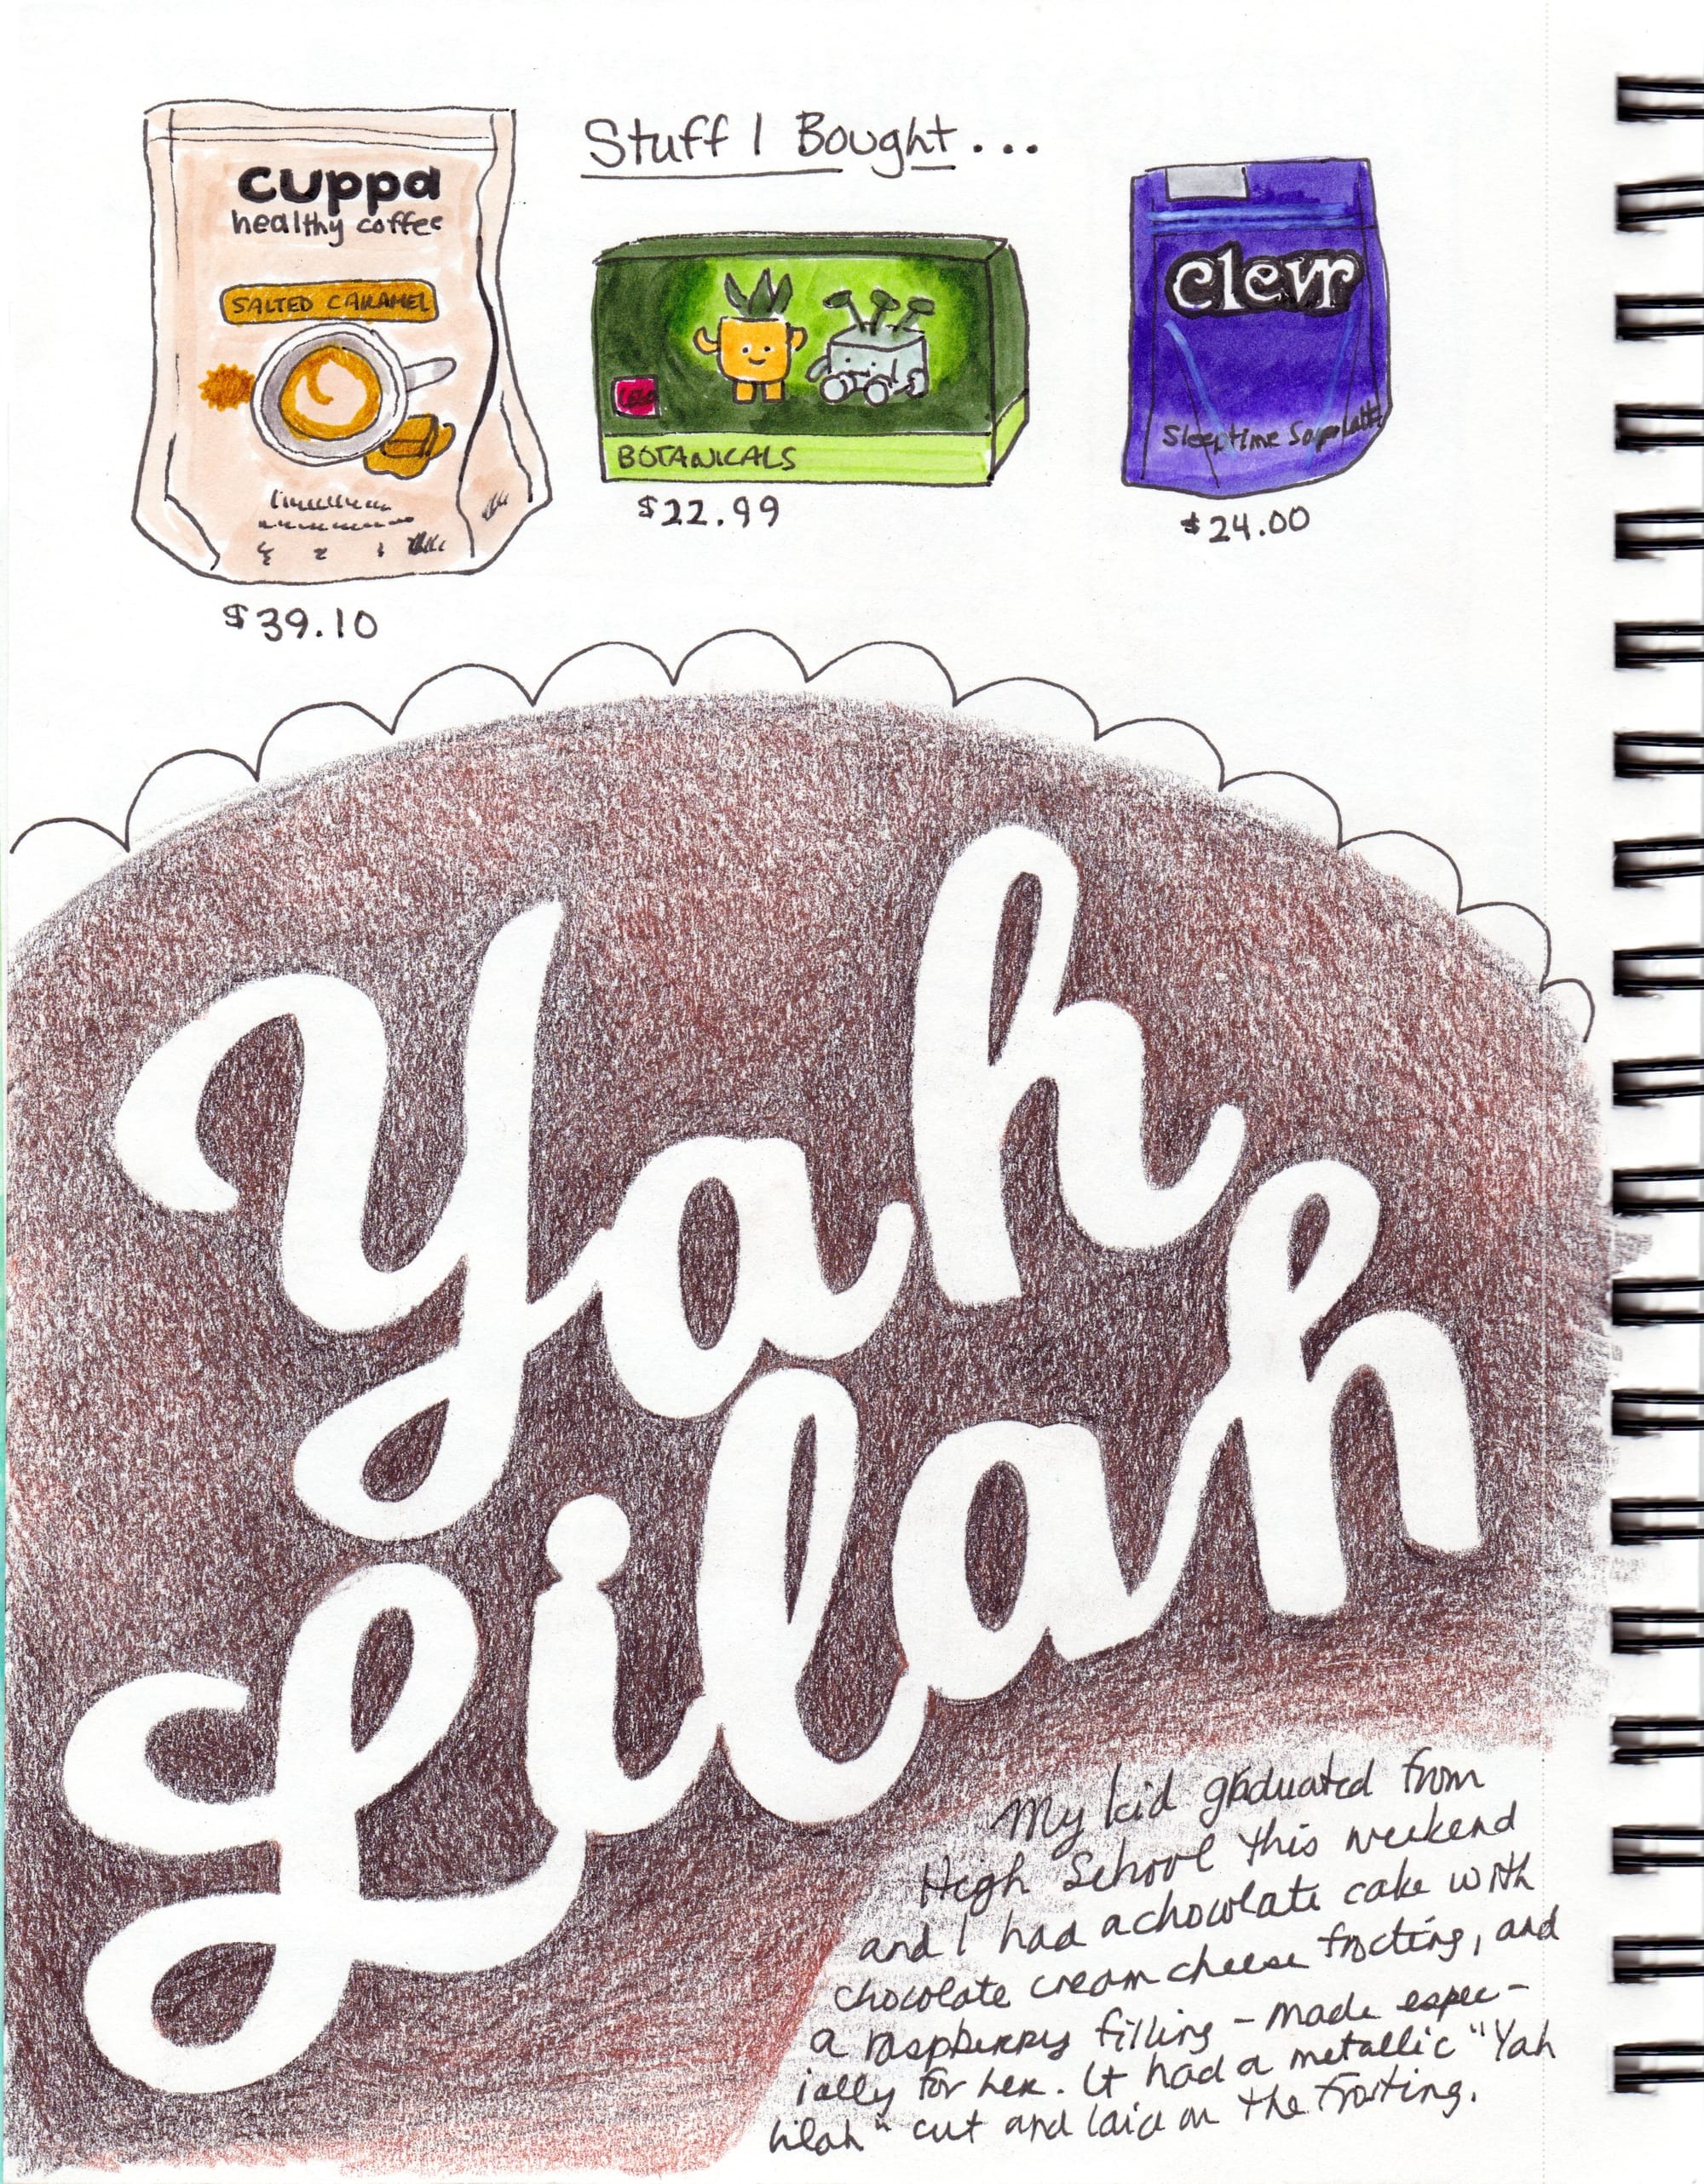 Stuff I Bought...
cuppa
healthy coffee
SALTED CARAMEL
$39.10
LEGO
BOTANICALS
$22.99
clevr
Sleeptime
$24.00
Yah
Lilah
My kid graduated from
High School this weekend
and I had a chocolate cake with
chocolate cream cheese frosting, and
a raspberry filling - made espec-
ially for her. It had a metallic "Yah
Lilah" cut and laid on the frosting.